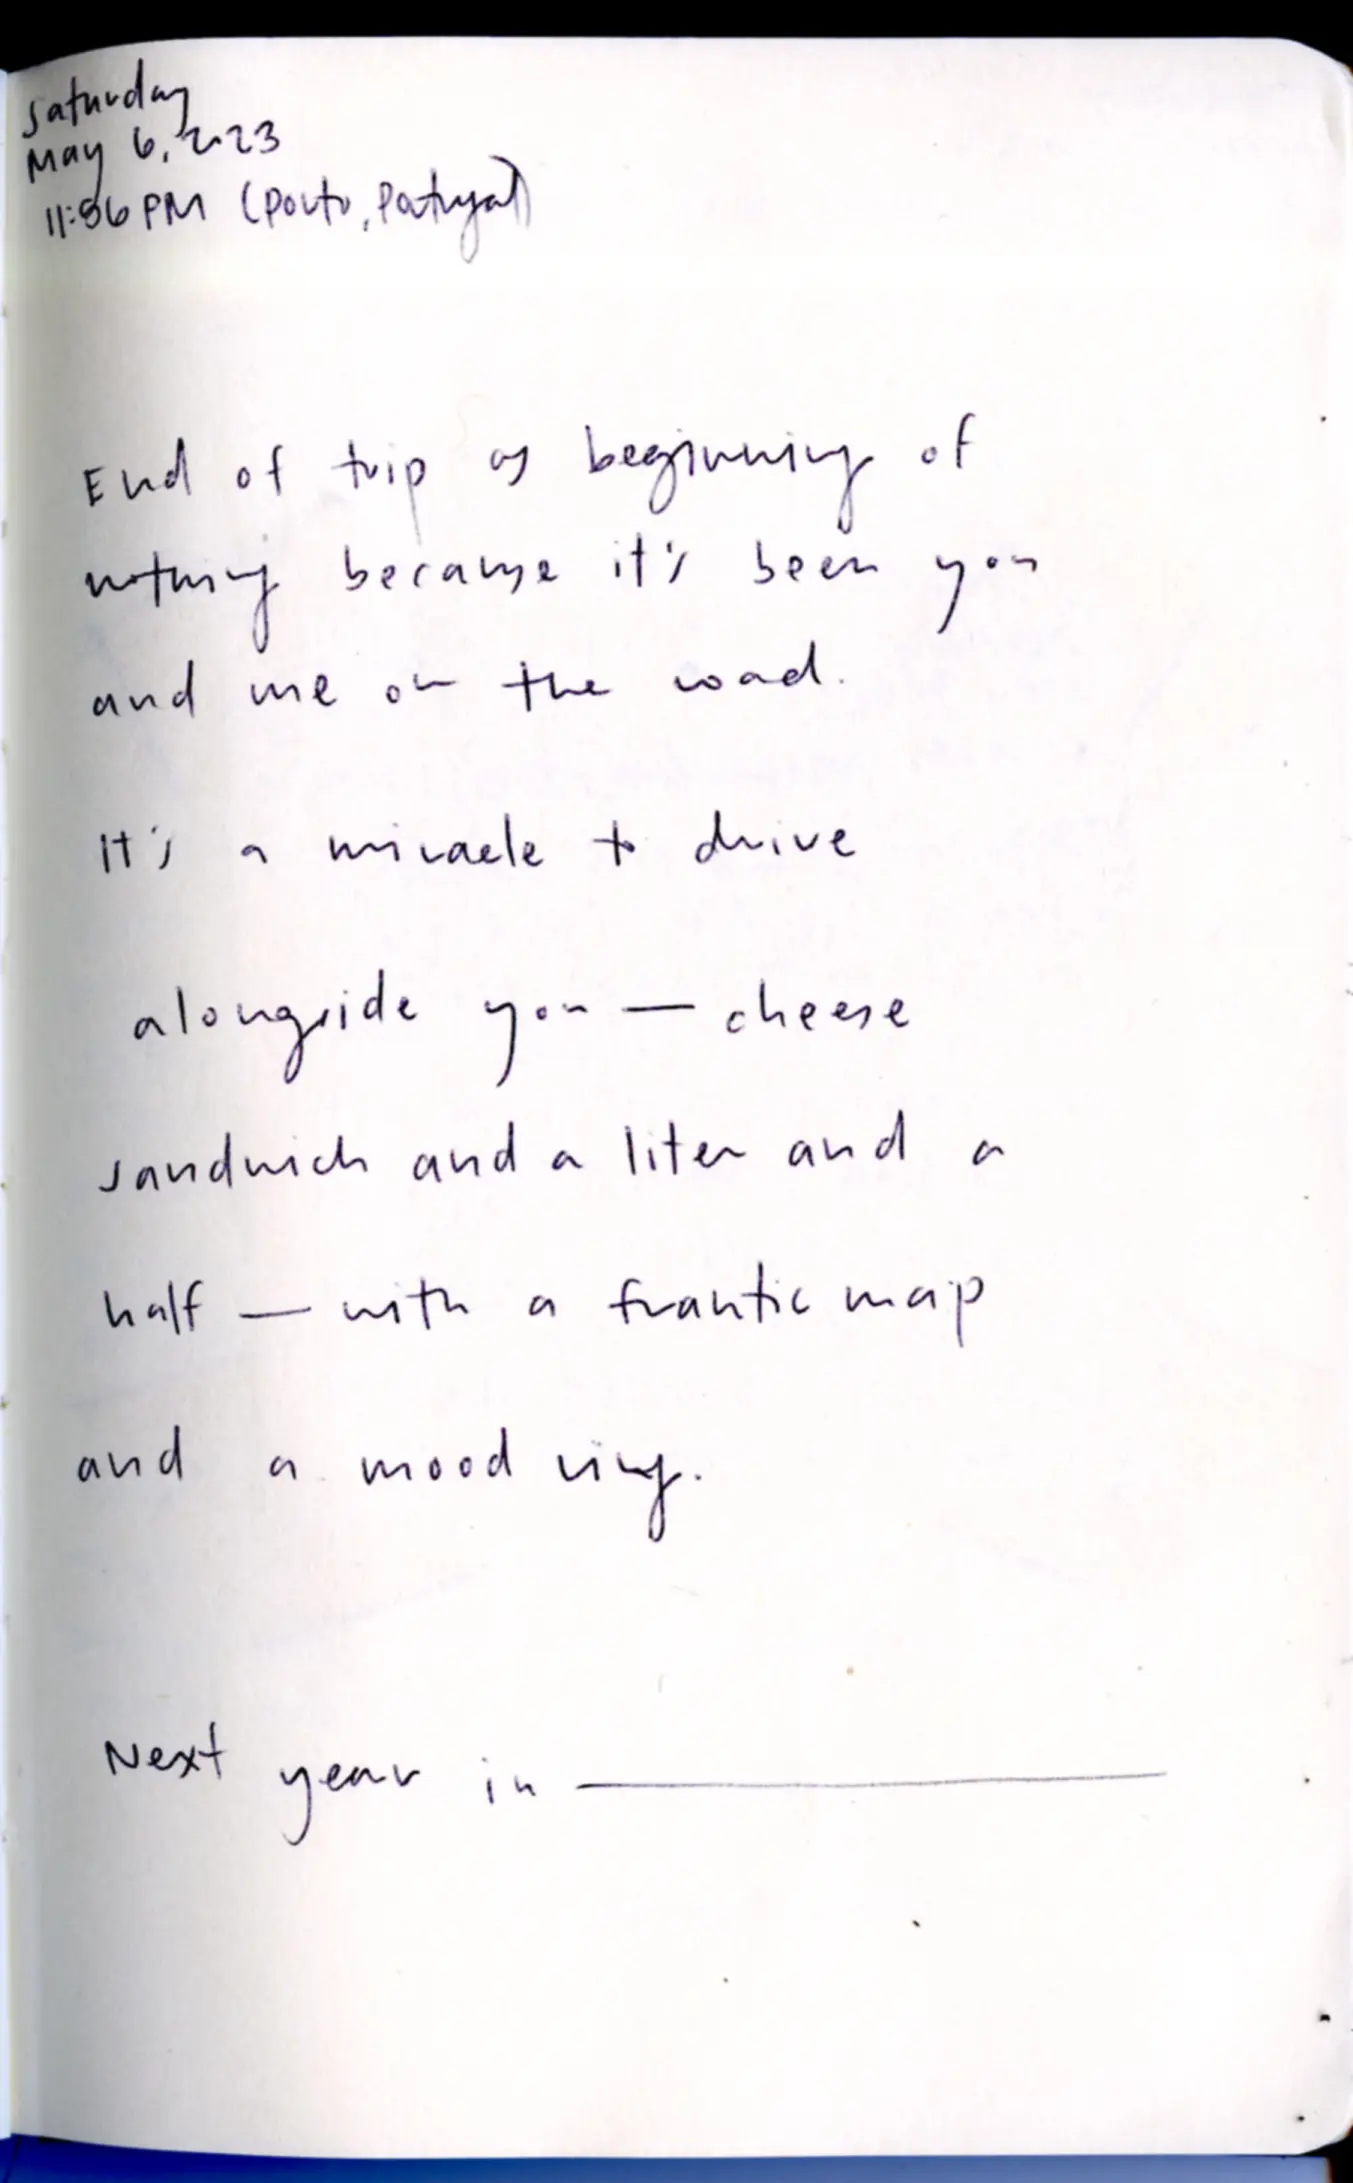 Saturday
May 6, 2023
11:56 PM (Porto, Portugal)
End of trip as beginning of
nothing because it's been you
and me on the road.
It's a miracle to drive
alongside you — cheese
sandwich and a liter and a
half — with a frantic map
and a mood ring.
Next year in ______________